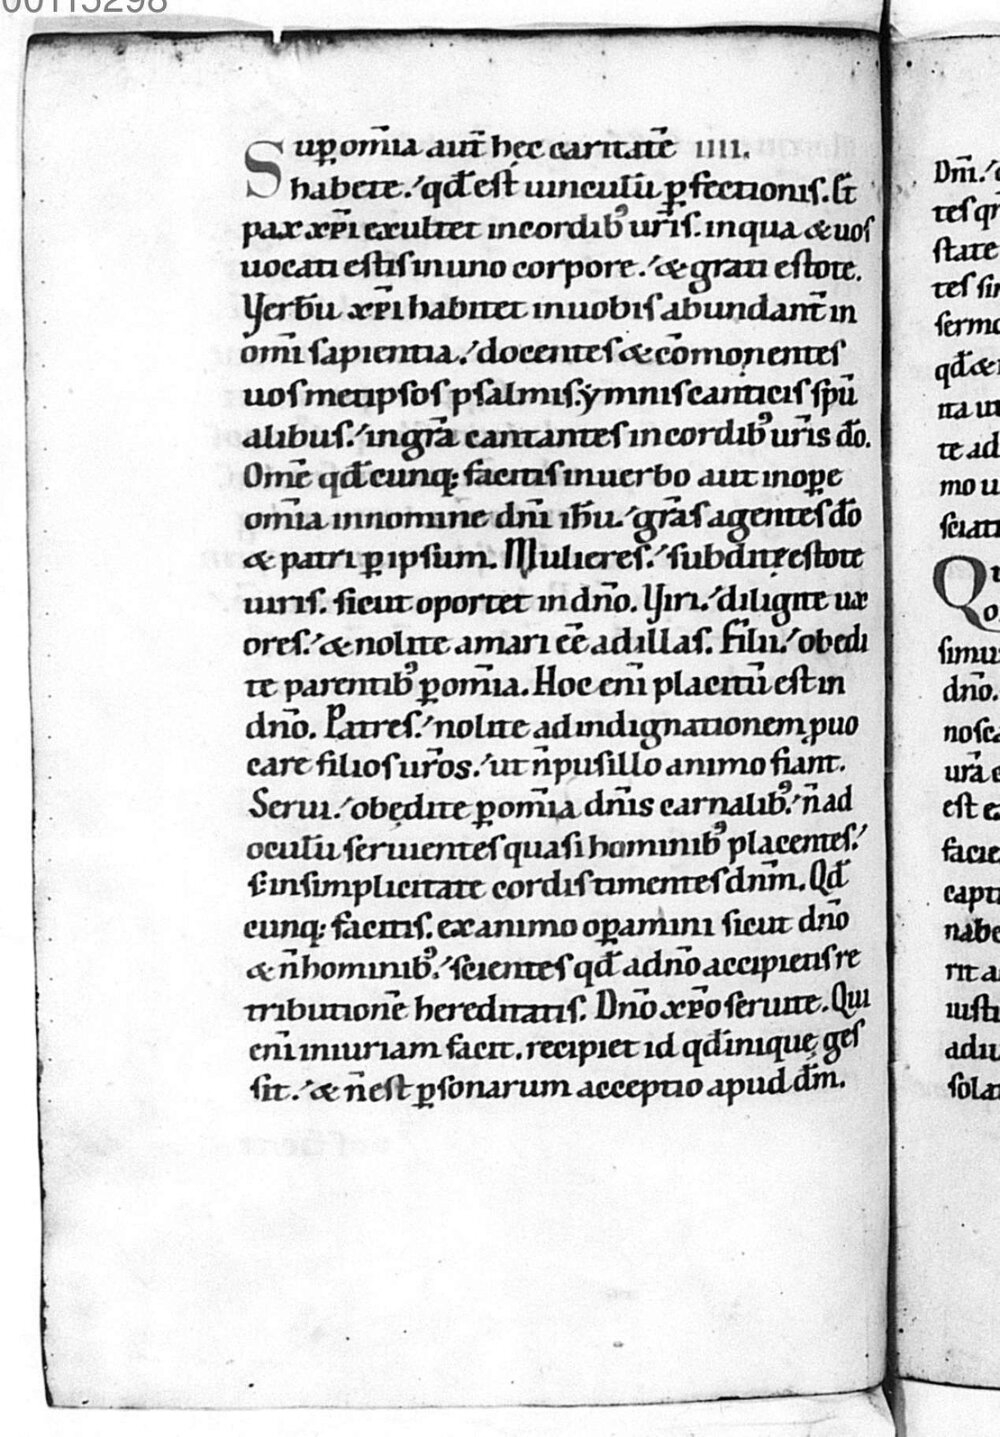 00115298
Suꝑ om̅ia aut̅ hęc caritate̅ IIII.
habete. qd̅ est uinculu̅ ꝑfectionis. Et
pax xp̅i exultet in cordib᷒ ur̅is. in qua & uos
uocati estis in uno corpore. & grati estote.
Verbu̅ xp̅i habitet in uobis abundant̅ in
om̅i sapientia. docentes & co̅monentes
uosmetipsos psalmis. ẏmnis canticis sp̅u
alibus. in gr̅a cantantes in cordib᷒ ur̅is do̅.
Om̅e qd̅cunq; facitis in uerbo aut in oꝑe
om̅ia in nomine dn̅i ih̅u. gr̅as agentes do̅
& patri ꝑ ipsum. Mulieres. subditę estote
uiris. sicut oportet in dn̅o. Viri. diligite ux
ores. & nolite amari ee̅ ad illas. Filii. obedi
te parentib᷒ ꝑ om̅ia. Hoc eni̅ placitu̅ est in
dn̅o. Patres. nolite ad indignationem ꝓuo
care filios ur̅os. ut n̅ pusillo animo fiant.
Serui. obedite ꝑ om̅ia dn̅is carnalib᷒. n̅ ad
oculu̅ seruientes quasi hominib᷒ placentes.
s; in simplicitate cordis timentes dn̅m. Qd̅
cunq; facitis. ex animo oꝑamini sicut dn̅o
& n̅ hominib᷒. scientes qd̅ a dn̅o accipiens re
tributione̅ hereditatis. Dn̅o xp̅o seruite. Qui
eni̅ iniuriam facit. recipiet id qd̅ inique ges
sit. & n̅ est ꝑsonarum acceptio apud dm̅.
Dm̅.
tes
state
tes
sermo
qd̅ &
ita
te ad
mo u
sciati
Qu
simu
dn̅o.
nosca
ur̅a
est
facie
capti
nabe
rit a
iusti
adiu
sola